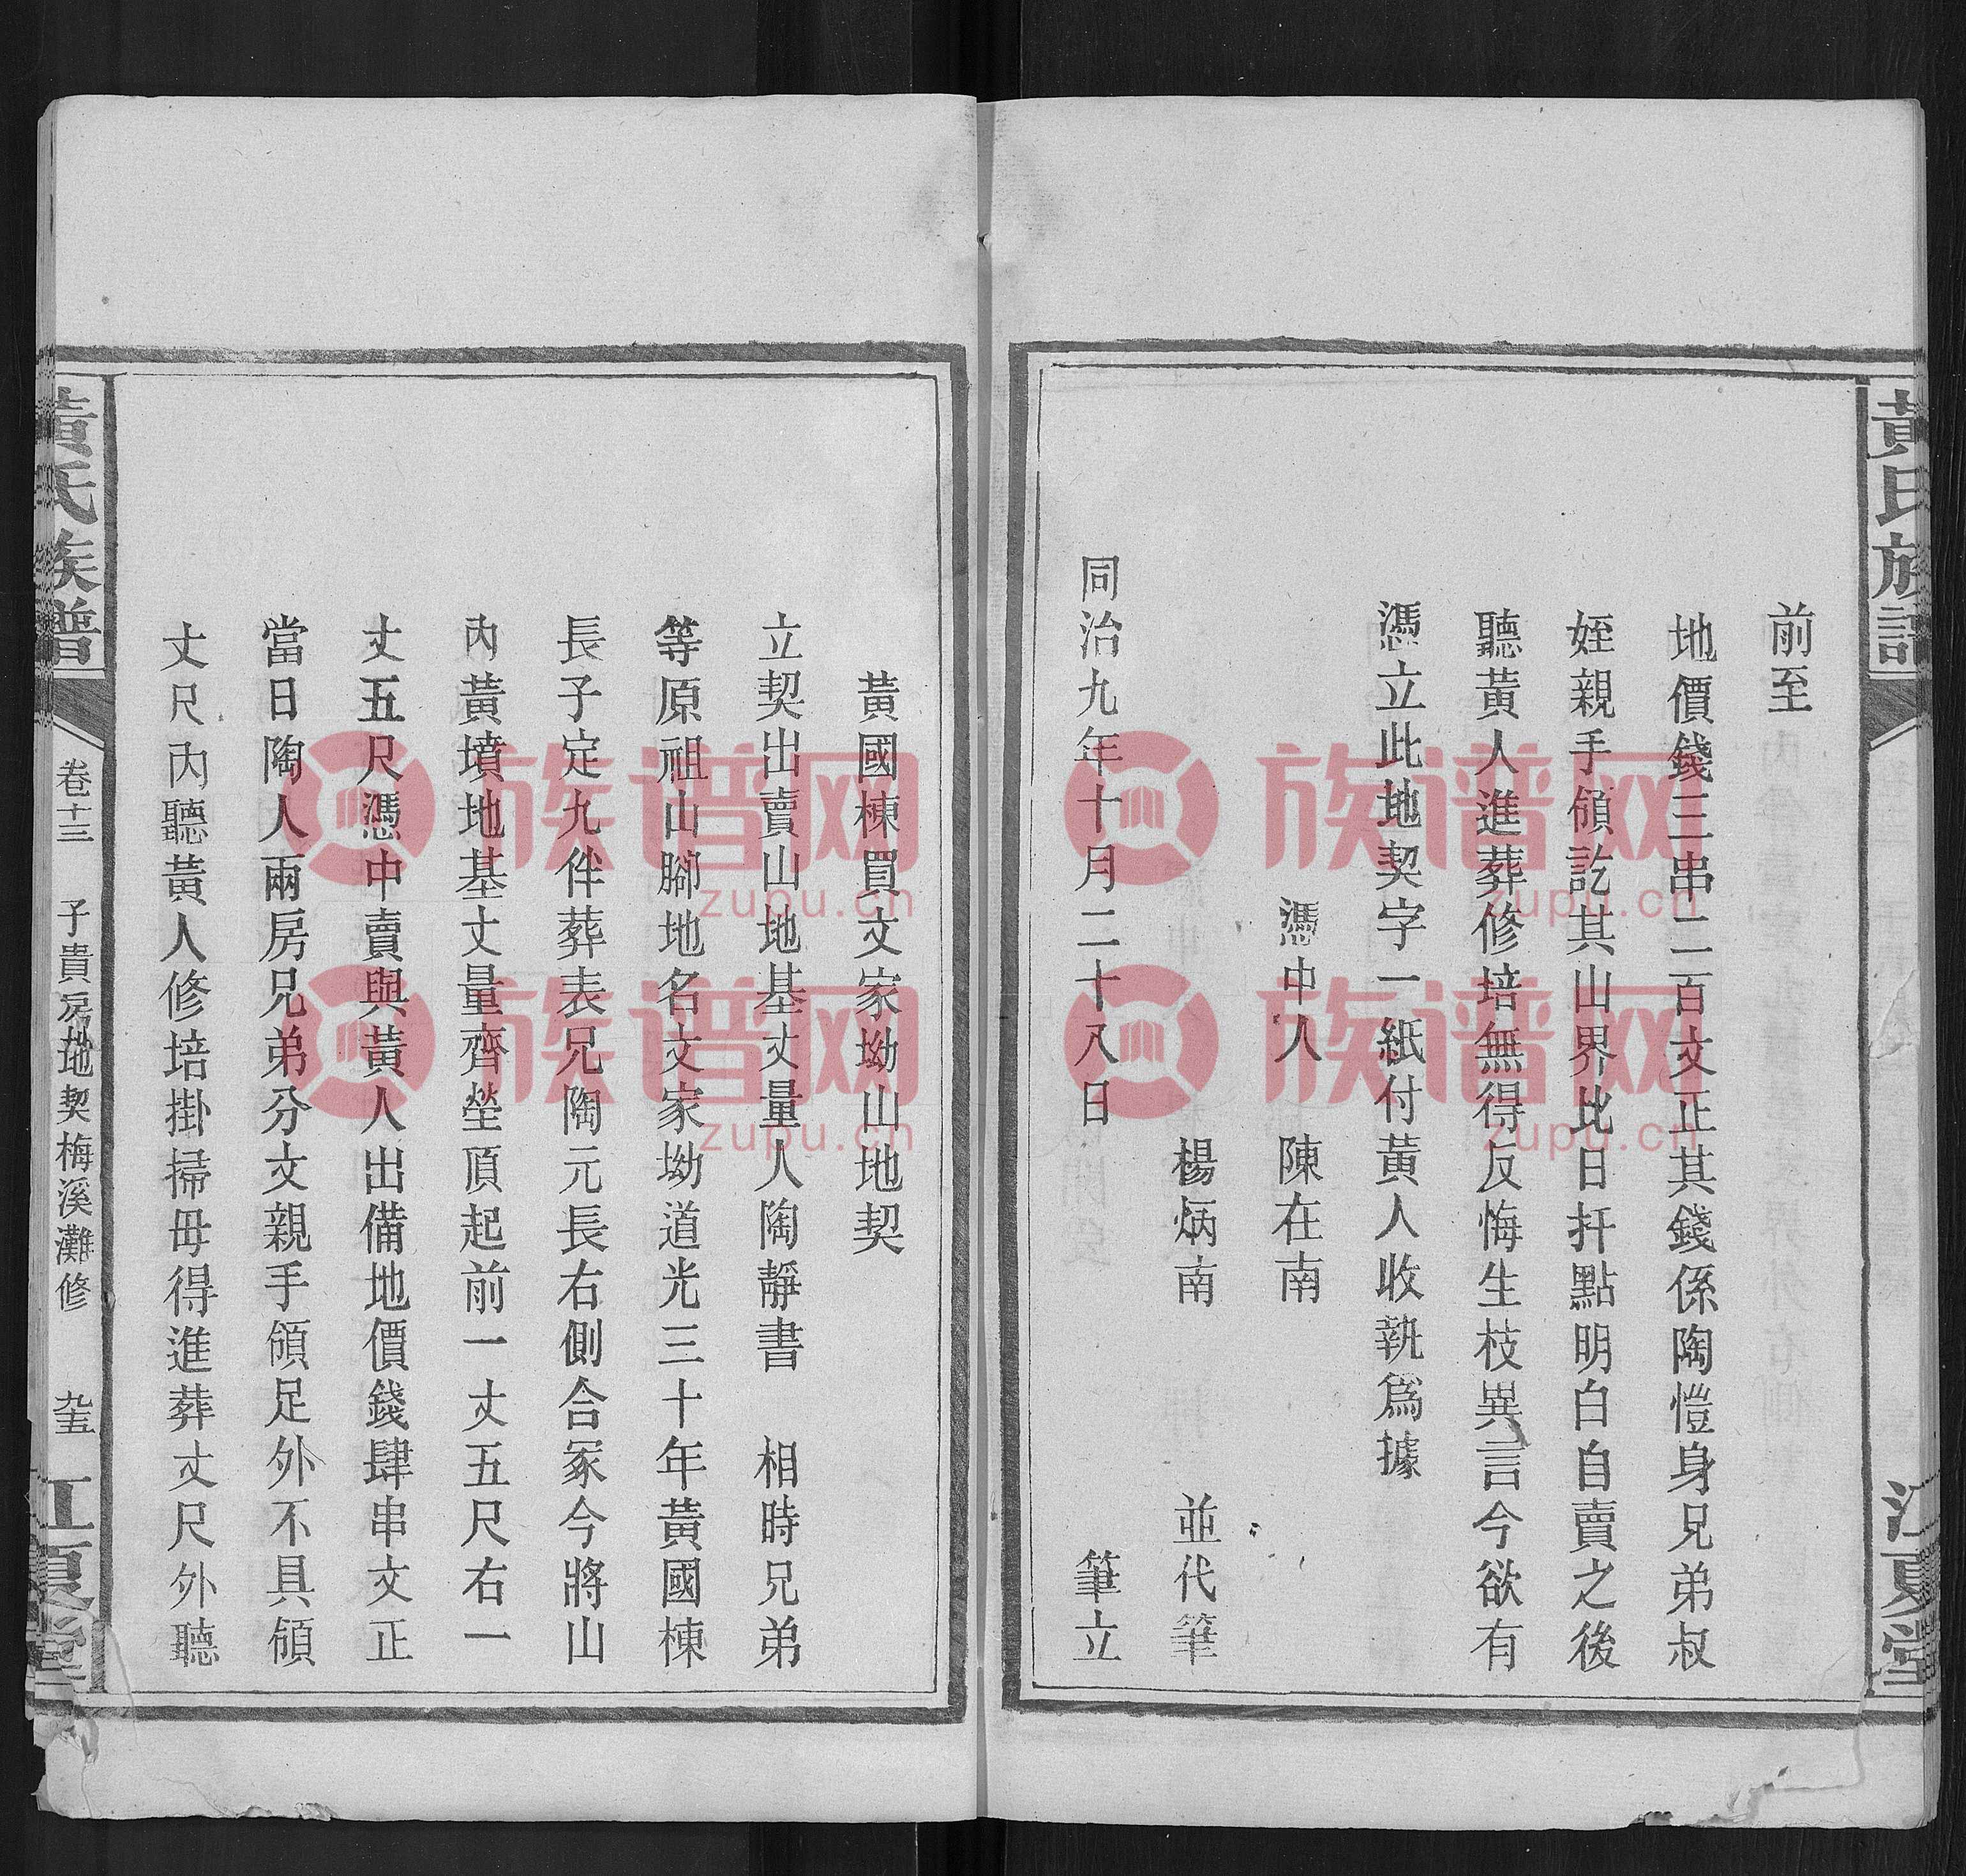 黃氏族譜
江夏堂
前至
地價錢三串二百文正其錢係陶愷身兄弟叔
姪親手領訖其山界比日扦點明白自賣之後
聽黃人進葬修培無得反悔生枝異言今欲有
憑立此地契字一紙付黃人收執為據
憑中人 陳在南
楊炳南 並代筆
同治九年十月二十八日 筆立
黃國棟買文家坳山地契
立契出賣山地基丈量人陶靜書 相時兄弟
等原祖山腳地名文家坳道光三十年黃國棟
長子定九伴葬表兄陶元長右側合冢今將山
內黃墳地基丈量齊塋頂起前一丈五尺右一
丈五尺憑中賣與黃人出備地價錢肆串文正
當日陶人兩房兄弟分文親手領足外不具領
丈尺內聽黃人修培掛掃毋得進葬丈尺外聽
黃氏族譜
卷十三 子貴房地契梅溪灘修 九五
江夏堂
族谱网
zupu.cn
族谱网
zupu.cn
族谱网
zupu.cn
族谱网
zupu.cn